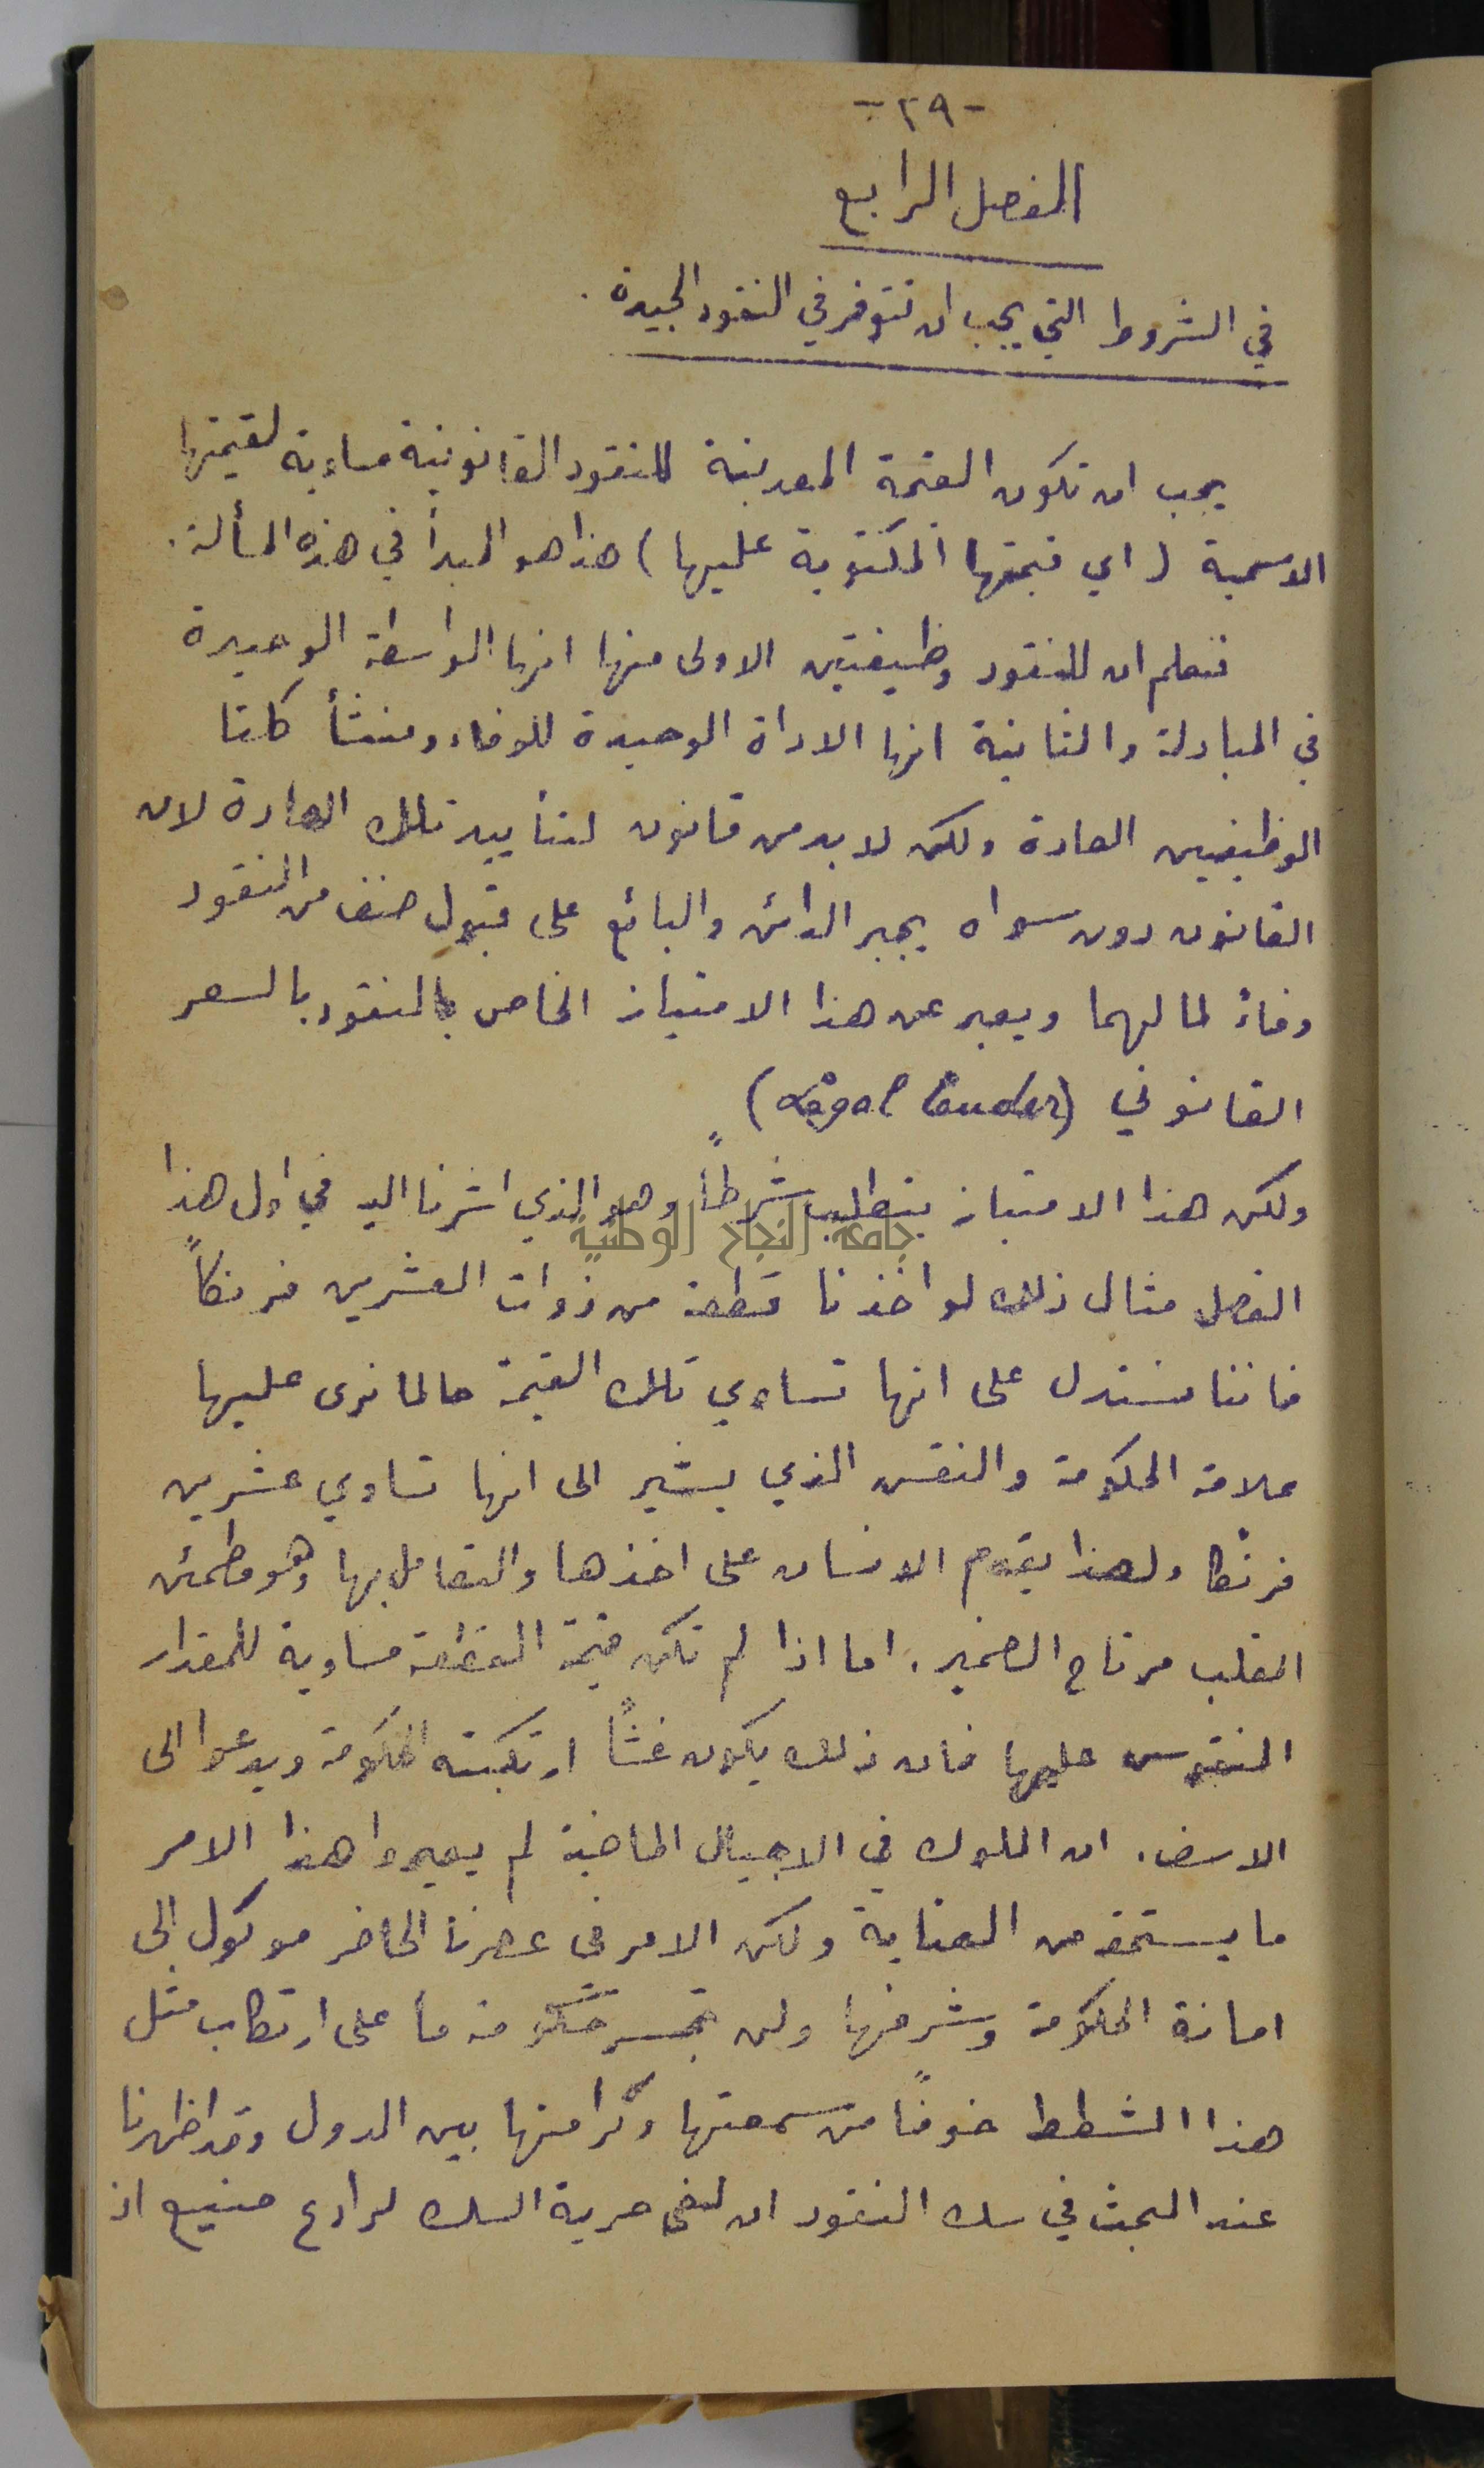 -٢٩-
الفصل الرابع
في الشروط التي يجب ان تتوفر في النقود الجيدة.
يجب ان تكون القيمة المعدنية للنقود القانونية مساوية لقيمتها
الاسمية (اي قيمتها المكتوبة عليها) هذا هو المبدأ في هذه المسألة.
فنعلم ان للنقود وظيفتين الاولى منها انها الواسطة الوحيدة
في المبادلة والثانية انها الاداة الوحيدة للوفاء ومنشأ كلتا
الوظيفيين العادة ولكن لا بد من قانون لتأييد تلك العادة لان
القانون دون سواه يجبر الدائن والبائع على قبول صنف من النقود
وفاءً لمالهما ويعبر عن هذا الامتياز الخاص بالنقود بالسعر
القانوني (Légal tender)
ولكن هذا الامتياز يتطلب شرطاً وهو الذي اشرنا اليه في اول هذا
جامعة النجاح الوطنية
الفصل مثال ذلك لو اخذنا قطعة من ذوات العشرين فرنكاً
فاننا نستدل على انها تساوي تلك القيمة حالما نرى عليها
علامة الحكومة والنقش الذي يشير الى انها تساوي عشرين
فرنكا ولهذا يقدم الانسان على اخذها والتعامل بها وهو مطمئن
القلب مرتاح الضمير. اما اذا لم تكن قيمة القطعة مساوية للمقدار
المنقوش عليها فان ذلك يكون غشاً ارتكبته الحكومة ويدعوا الى
الاسف. ان الملوك في الاجيال الماضية لم يعيروا هذا الامر
ما يستحقه من العناية ولكن الامر في عصرنا الحاضر موكول الى
امانة الحكومة وشرفها ولن تجسر حكومة ما على ارتكاب مثل
هذا الشطط خوفاً من سمعتها وكرامتها بين الدول وقد اظهرنا
عند البحث في سك النقود ان حرية السك لرادع منيع اذ